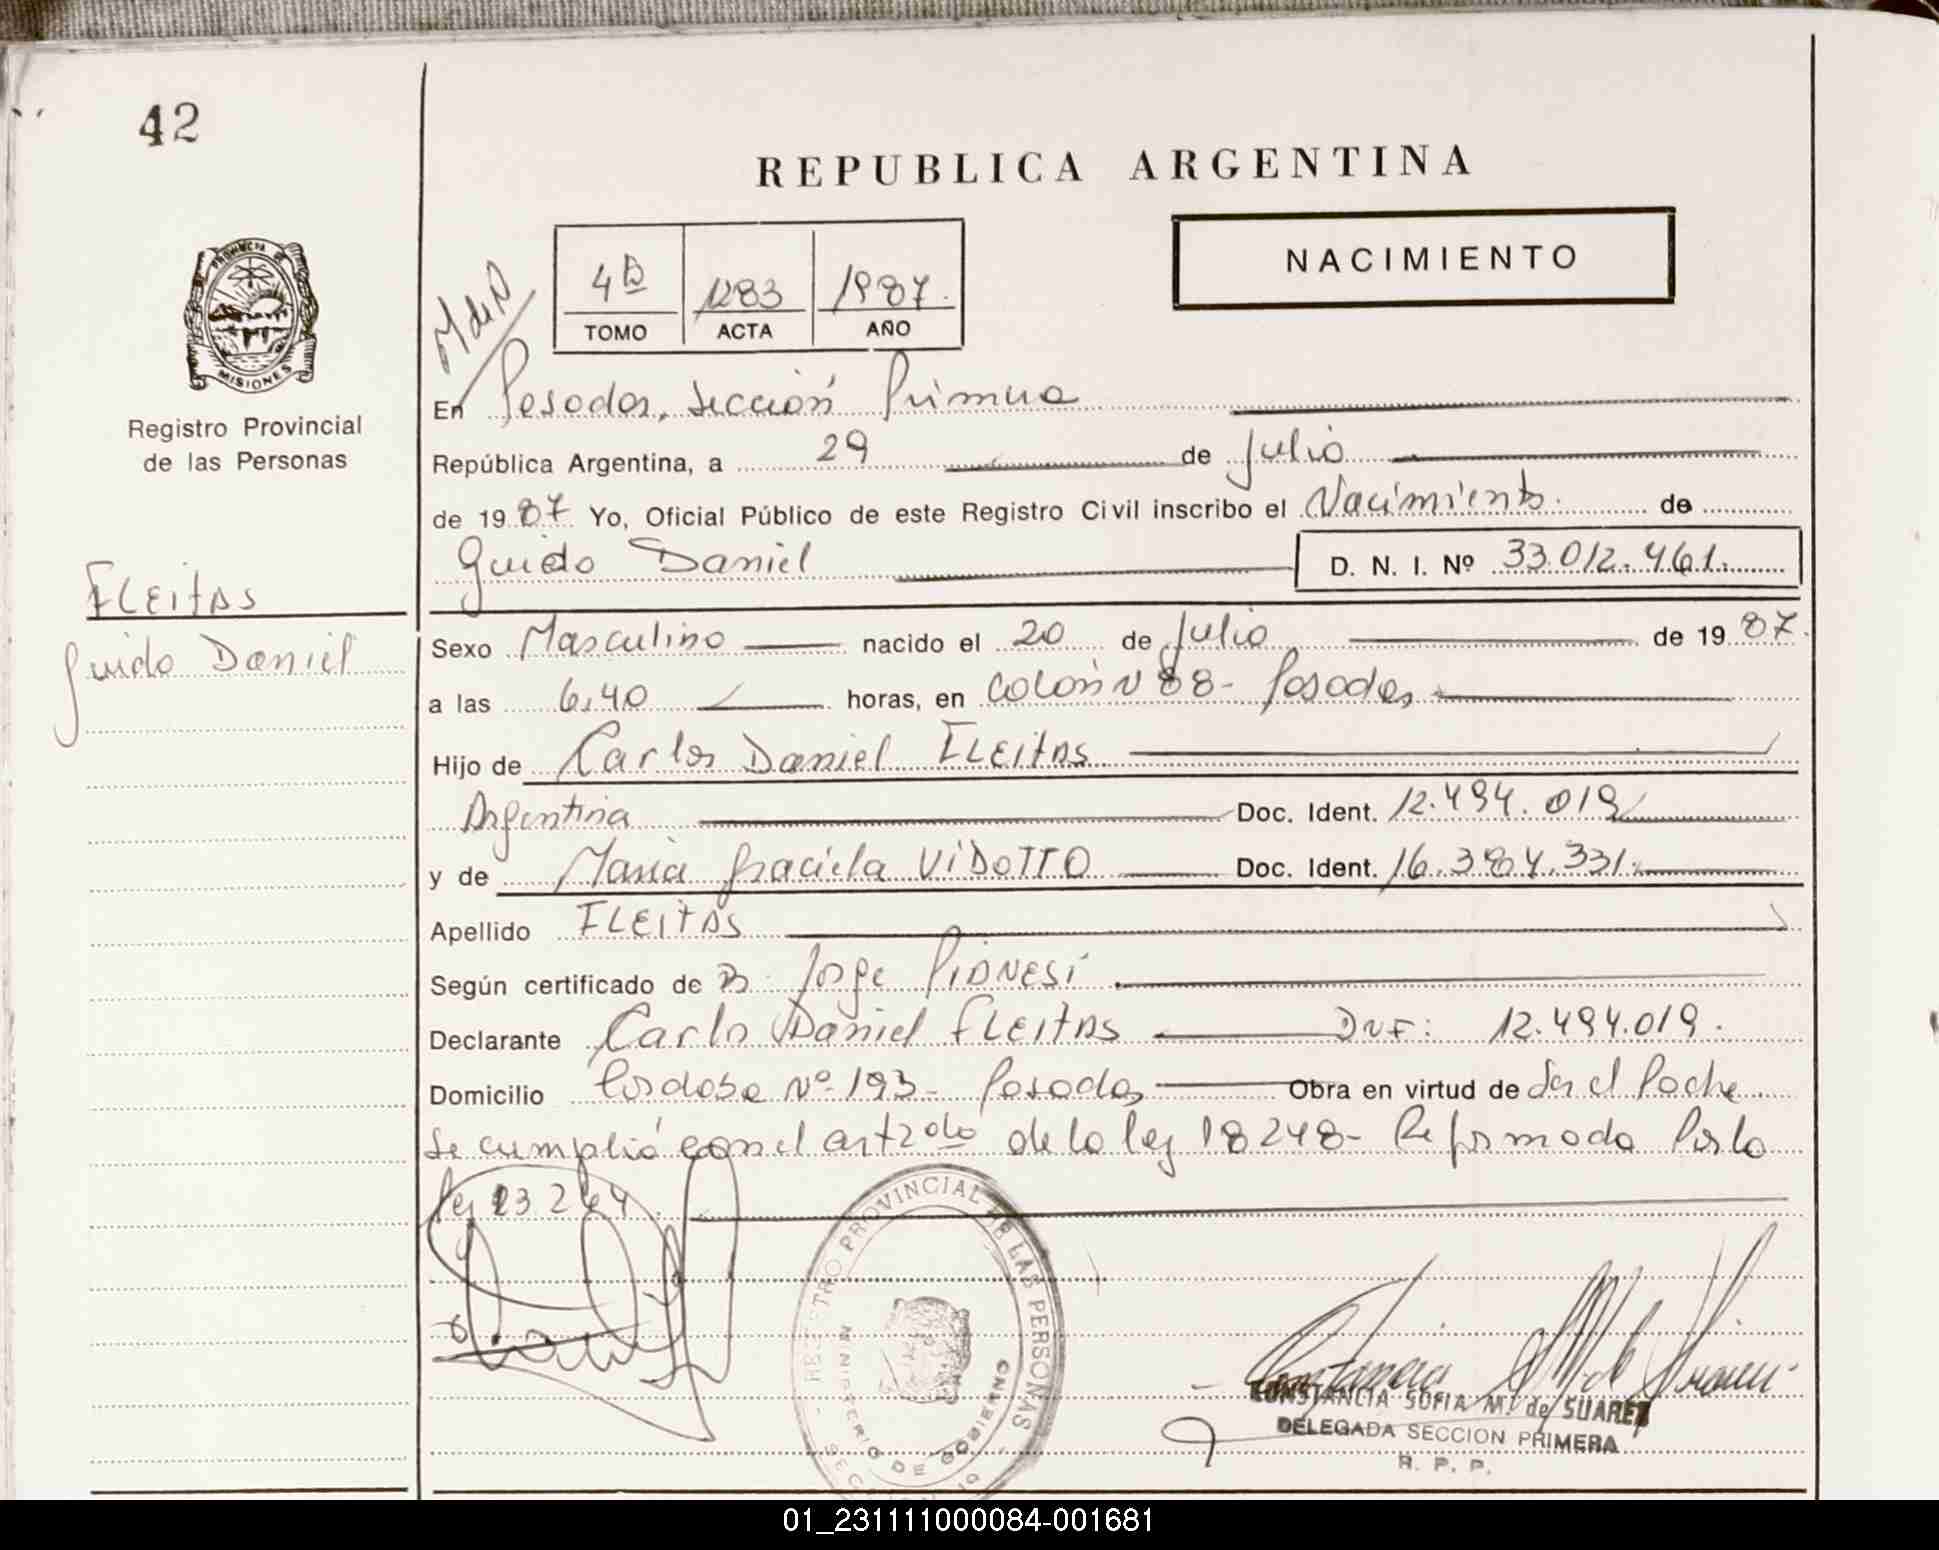 42
REPUBLICA ARGENTINA
PROVINCIA DE
MISIONES
Registro Provincial
de las Personas
M de N
4 B 1283 1987.
TOMO ACTA AÑO
NACIMIENTO
En Posadas, Sección Primera
República Argentina, a 29 de Julio
de 1987 Yo, Oficial Público de este Registro Civil inscribo el Nacimiento. de
Guido Daniel
D. N. I. Nº 33.012.461.
FLEITAS
Guido Daniel
Sexo Masculino nacido el 20 de Julio de 1987.
a las 6,40 horas, en Colón N 88- Posadas
Hijo de Carlos Daniel FLEITAS
Argentina Doc. Ident. 12.494.019
y de Maria Graciela VIDOTTO Doc. Ident. 16.384.331.
Apellido FLEITAS
Según certificado de Jorge PIANESI
Declarante Carlos Daniel FLEITAS DNI: 12.494.019.
Domicilio Cordoba Nº 193- Posadas Obra en virtud de Ser el Padre.
Se cumplió con el art 2do de la ley 18248- Reformada Por la
ley 23264.
REGISTRO PROVINCIAL DE LAS PERSONAS
MINISTERIO DE GOBIERNO
CONSTANCIA SOFIA M. de SUAREZ
DELEGADA SECCION PRIMERA
R. P. P.
01_231111000084-001681